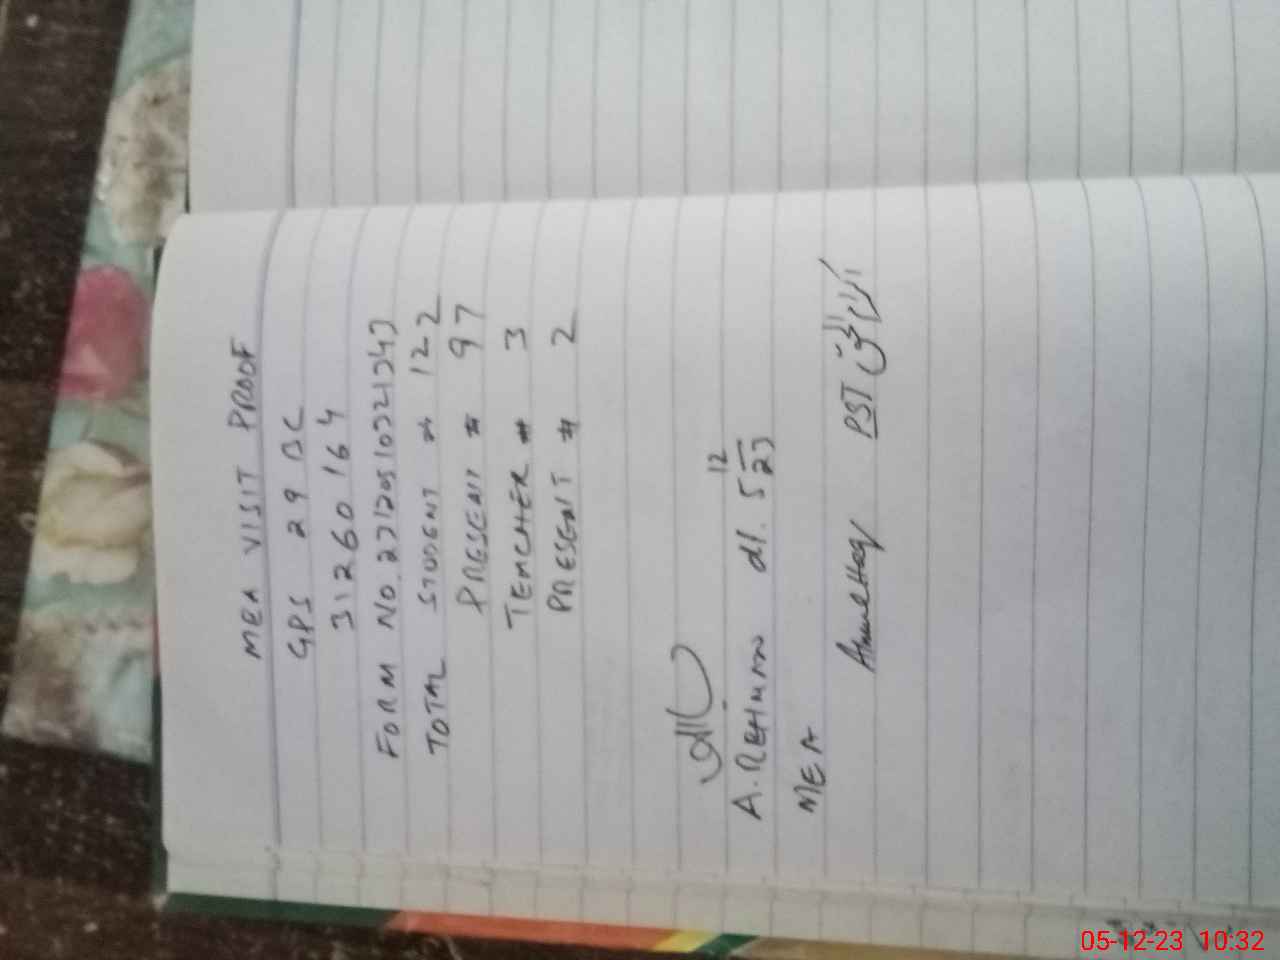 MEA VISIT PROOF
GPS 29 BC
31260164
FORM NO.
TOTAL STUDENT # 122
PRESENT # 97
TEACHER # 3
PRESENT # 2
A. REHMAN dt. 5 12 23
MEA
PST
05-12-23 10:32